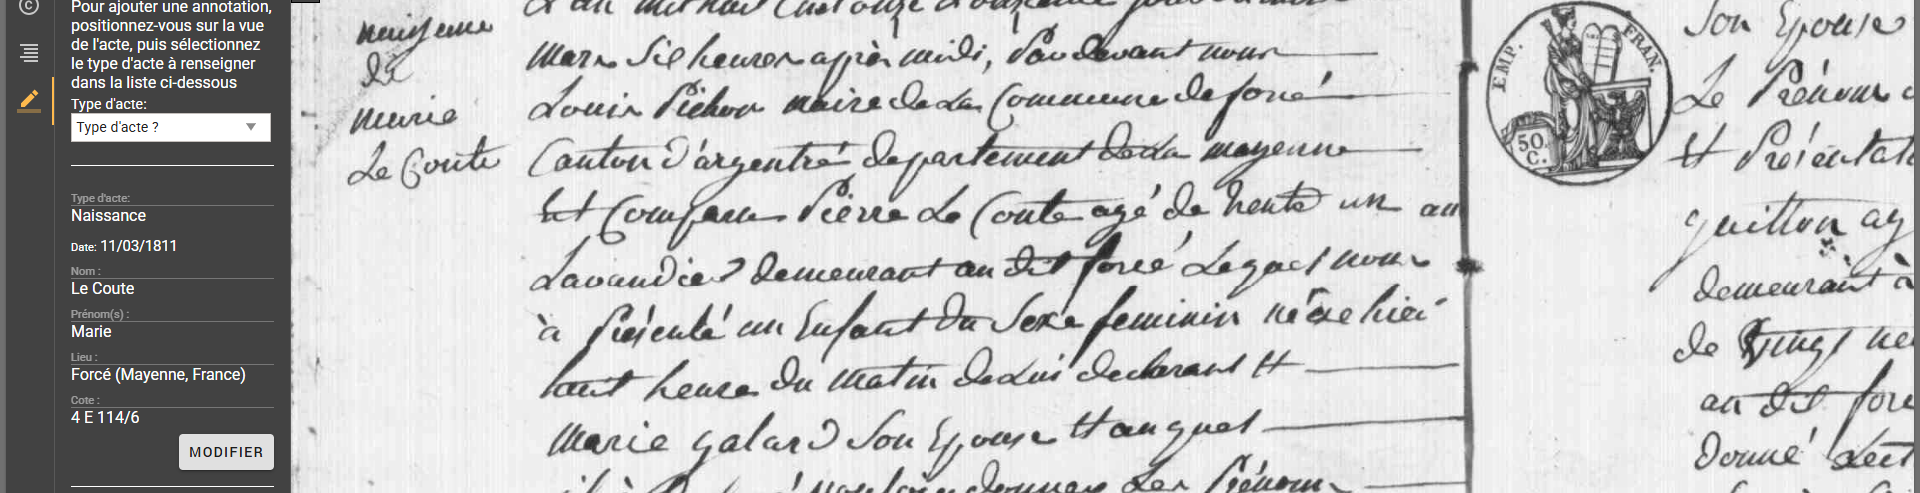 Pour ajouter une annotation,
positionnez-vous sur la vue
de l'acte, puis sélectionnez
le type d'acte à renseigner
dans la liste ci-dessous
Type d'acte:
Type d'acte ?
Type d'acte:
Naissance
Date: 11/03/1811
Nom :
Le Coute
Prénom(s) :
Marie
Lieu :
Forcé (Mayenne, France)
Cote :
4 E 114/6
MODIFIER
de
marie
Le Coute
mars Sie heures après midi, Pardevant nous
Louis Pichon maire de La Commune de forcé
Canton d'argentré departement de La mayenne
Est Comparu Pierre Le Coute agé de trente un an
Lavandier demeurant au dit forcé Lequel nous
à Présenté un Enfant du Sexe feminin née hier
heure du matin de Lui declarant Et
Marie galard Son Epouse Et auquel
donner Les Prénom
EMP. FRAN.
50
C.
Son Epouse
Le Prénom
Et
guitton ag
demeurant à
de Vingt
an dit
Donné Lect